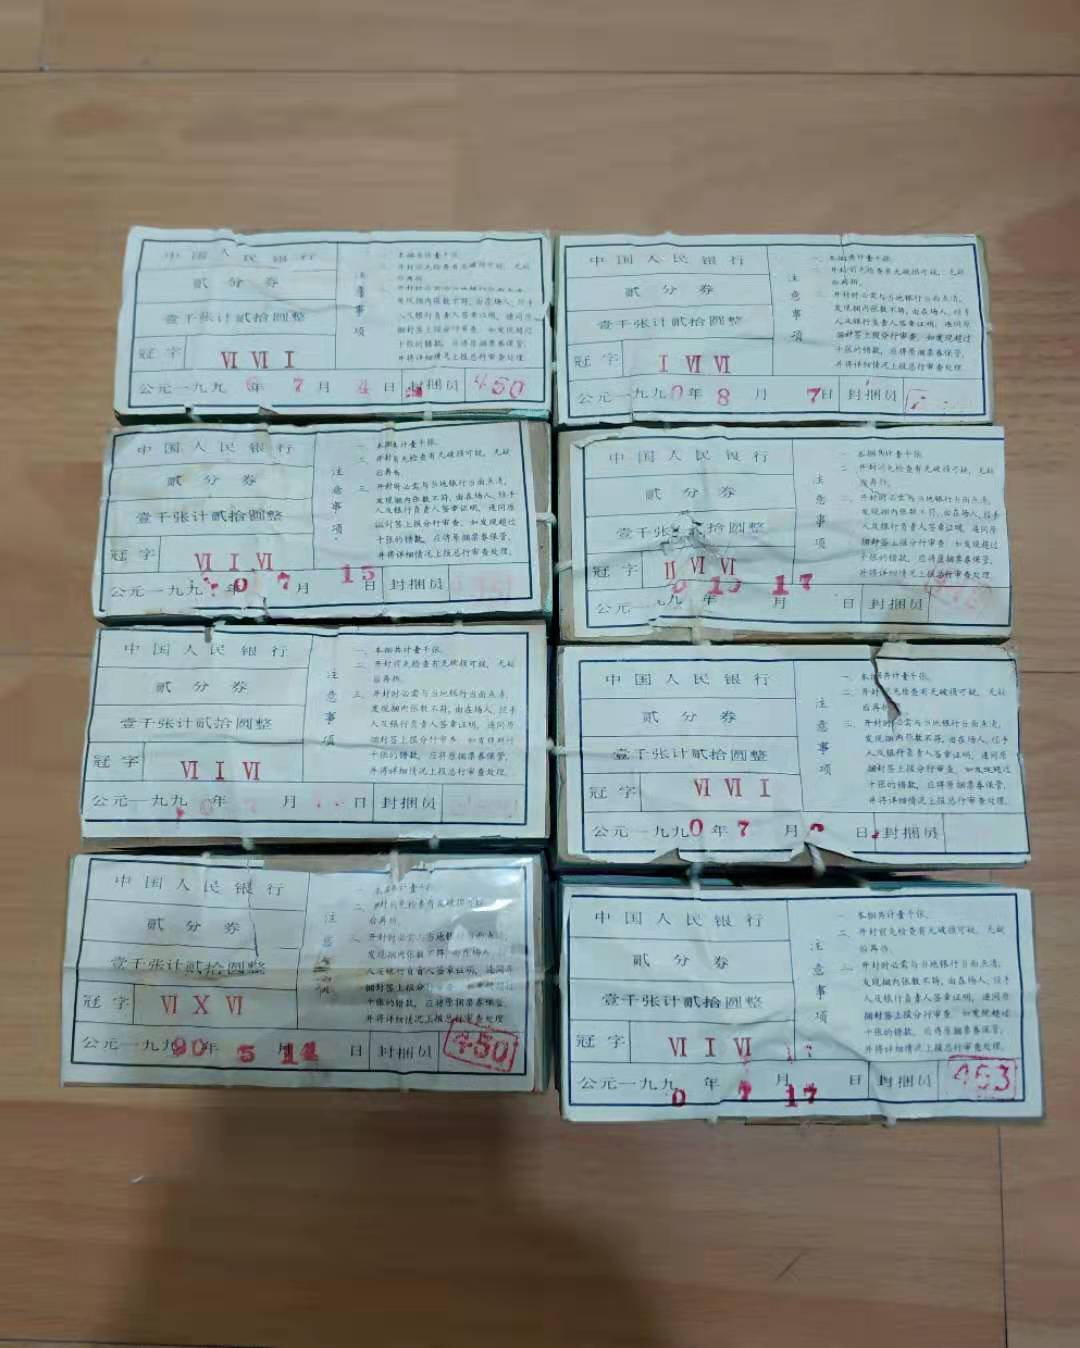 中国人民银行
贰分券
壹千张计贰拾圆整
冠字 VI VI I
公元一九九 年 7 月 4 日 封捆员 450
注意事项
一、本捆共计壹千张。
二、开封前先检查有无破损可疑,无疑
后再拆。
开封时必需与当地银行当面点清,
发现捆内张数不符,由在场人、经手
人及银行负责人签章证明,连同原
捆封签上报分行审查,如发现超过
十张的错款,应将原捆票券保管,
并将详细情况上报总行审查处理
中国人民银行
贰分券
壹千张计贰拾圆整
冠字 I VI VI
公元一九九0年 8 月 7日 封捆员
注意事项
一、本捆共计壹千张。
二、开封前先检查有无破损可疑,无疑
后再拆。
三、开封时必需与当地银行当面点清,
发现捆内张数不符,由在场人、经手
人及银行负责人签章证明,连同原
捆封签上报分行审查,如发现超过
十张的错款,应将原捆票券保管,
并将详细情况上报总行审查处理
中国人民银行
贰分券
壹千张计贰拾圆整
冠字 VI I VI
公元一九九0 7 月 15 日 封捆员
注意事项
一、本捆共计壹千张。
二、开封前先检查有无破损可疑,无疑
后再拆。
三、开封时必需与当地银行当面点清,
发现捆内张数不符,由在场人、经手
人及银行负责人签章证明,连同原
捆封签上报分行审查,如发现超过
十张的错款,应将原捆票券保管,
并将详细情况上报总行审查处理。
中国人民银行
贰分券
壹千张计贰拾圆整
冠字 II VI VI
公元一九九0年 10 月 17 日 封捆员
注意事项
一、本捆共计壹千张。
二、开封前先检查有无破损可疑,无疑
后再拆。
三、开封时必需与当地银行当面点清,
发现捆内张数不符,由在场人、经手
人及银行负责人签章证明,连同原
捆封签上报分行审查,如发现超过
十张的错款,应将原捆票券保管,
并将详细情况上报总行审查处理
中国人民银行
贰分券
壹千张计贰拾圆整
冠字 VI I VI
公元一九九0年 月 日 封捆员
注意事项
一、本捆共计壹千张。
二、开封前先检查有无破损可疑,无疑
后再拆。
三、开封时必需与当地银行当面点清,
发现捆内张数不符,由在场人、经手
人及银行负责人签章证明,连同原
捆封签上报分行审查,如发现超过
十张的错款,应将原捆票券保管,
并将详细情况上报总行审查处理。
中国人民银行
贰分券
壹千张计贰拾圆整
冠字 VI VI I
公元一九九0年 7 月 日 封捆员
注意事项
一、本捆共计壹千张。
二、开封前先检查有无破损可疑,无疑
后再拆。
三、开封时必需与当地银行当面点清,
发现捆内张数不符,由在场人、经手
人及银行负责人签章证明,连同原
捆封签上报分行审查,如发现超过
十张的错款,应将原捆票券保管,
并将详细情况上报总行审查处理。
中国人民银行
贰分券
壹千张计贰拾圆整
冠字 VI X VI
公元一九90年 5 月 日 封捆员 450
注意
一、本捆共计壹千张。
二、开封前先检查有无破损可疑,无疑
后再拆。
三、开封时必需与当地银行当面点清,
发现捆内张数不符,由在场人、
人及银行负责人签章证明,连同原
捆封签上报分行审查,如发现超过
十张的错款,应将原捆票券保管,
并将详细情况上报总行审查处理
中国人民银行
贰分券
壹千张计贰拾圆整
冠字 VI I VI
公元一九九0年 月 17 日 封捆员 453
注意事项
一、本捆共计壹千张。
二、开封前先检查有无破损可疑,无疑
后再拆。
三、开封时必需与当地银行当面点清,
发现捆内张数不符,由在场人、经手
人及银行负责人签章证明,连同原
捆封签上报分行审查,如发现超过
十张的错款,应将原捆票券保管,
并将详细情况上报总行审查处理。